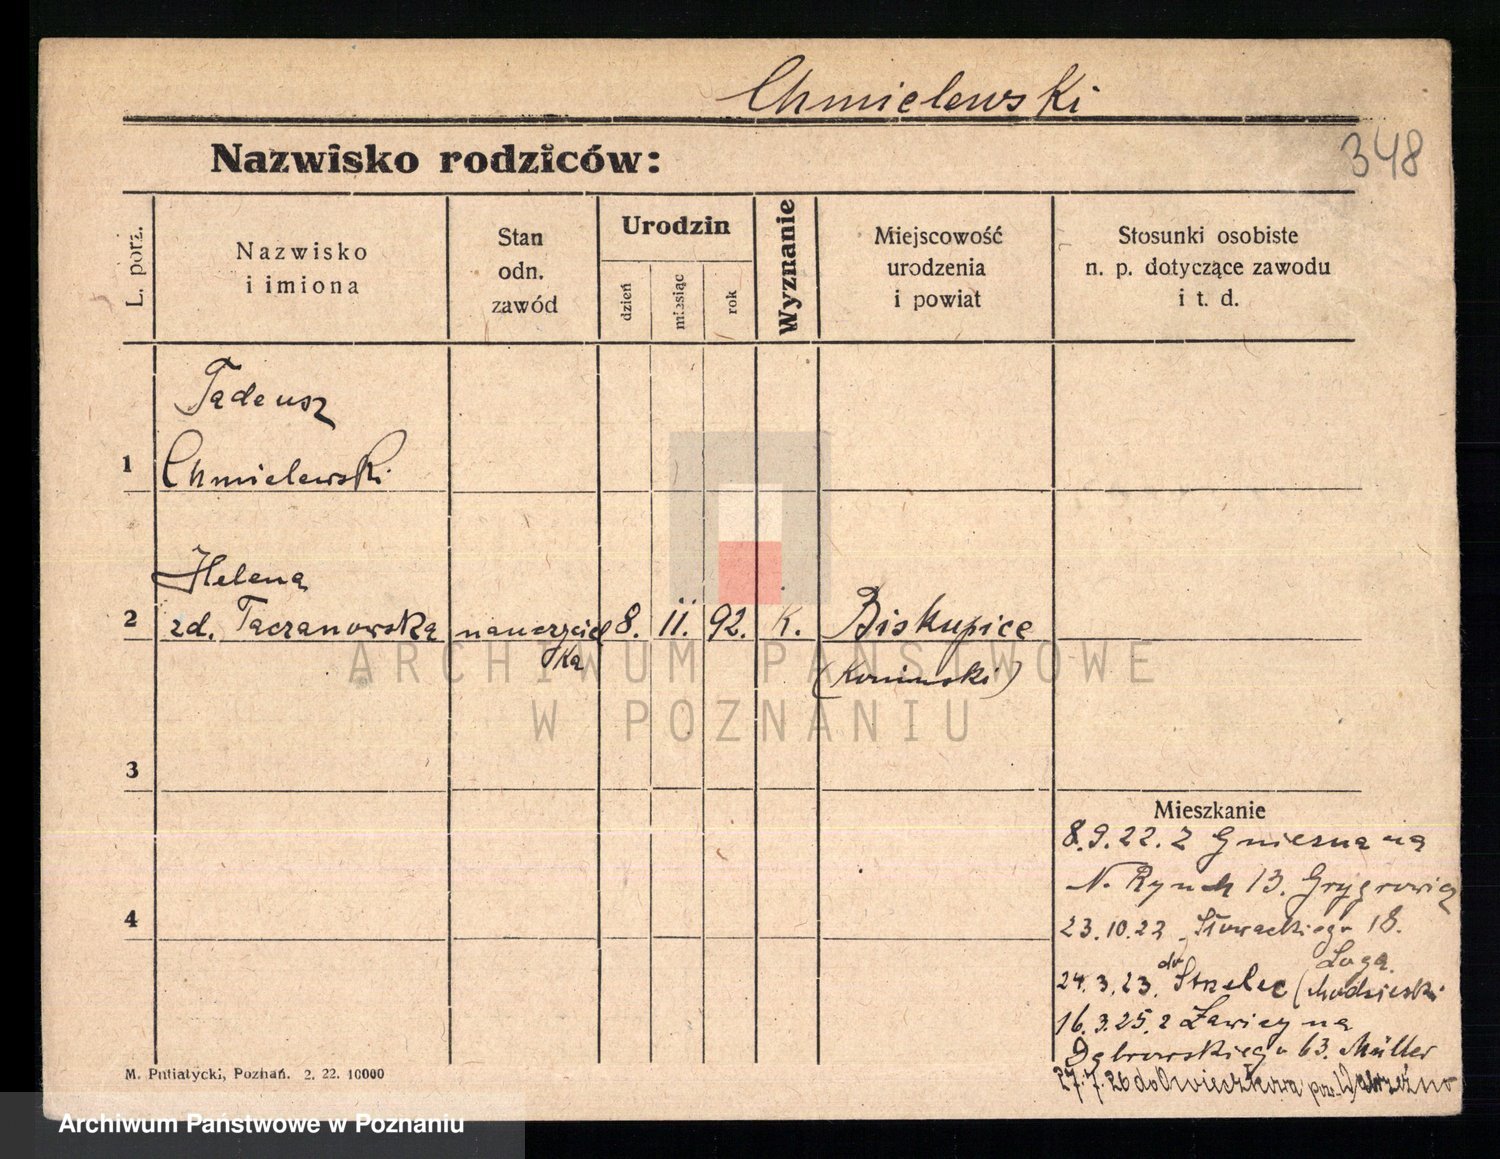 Chmielewski
348
Nazwisko rodziców:
L. porz.
Nazwisko
i imiona
Stan
odn.
zawód
Urodzin
dzień
miesiąc
rok
Wyznanie
Miejscowość
urodzenia
i powiat
Stosunki osobiste
n. p. dotyczące zawodu
i t. d.
Tadeusz
1 Chmielewski
Helena
2 zd. Taczanowska nauczyciel 8. 11. 92. K. Biskupice
ka (Koniński)
ARCHIWUM PAŃSTWOWE
W POZNANIU
3
Mieszkanie
8.9.22. z Gniezna na
N. Rynek 13. Grygrowicz
4
23.10.22 Słowackiego 18.
24.3.23. do Strzelec (
16.3.25. z na
Dąbrowskiego 63. Müller
27.7.26 do pow.
M. Putiatycki, Poznań. 2. 22. 10000
Archiwum Państwowe w Poznaniu